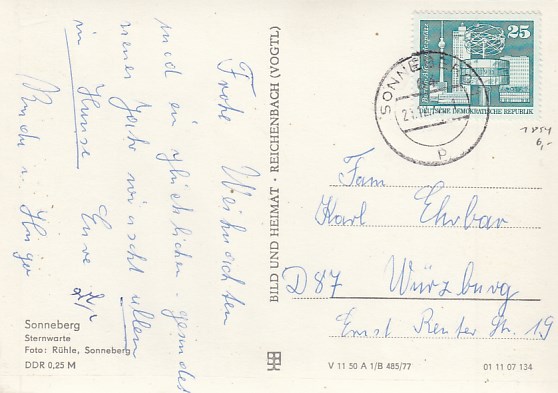 Frohe Weihnachten
und ein glückliches, gesundes
neues Jahr wünscht allen
in Hause Eure
Sonneberg
Sternwarte
Foto: Rühle, Sonneberg
DDR 0,25 M
BILD UND HEIMAT · REICHENBACH (VOGTL)
25
DEUTSCHE DEMOKRATISCHE REPUBLIK
SONNEBERG
Fam
Karl Ehrbar
D87 Würzburg
Ernst Reuter Str. 19
V 11 50 A 1/B 485/77
01 11 07 134